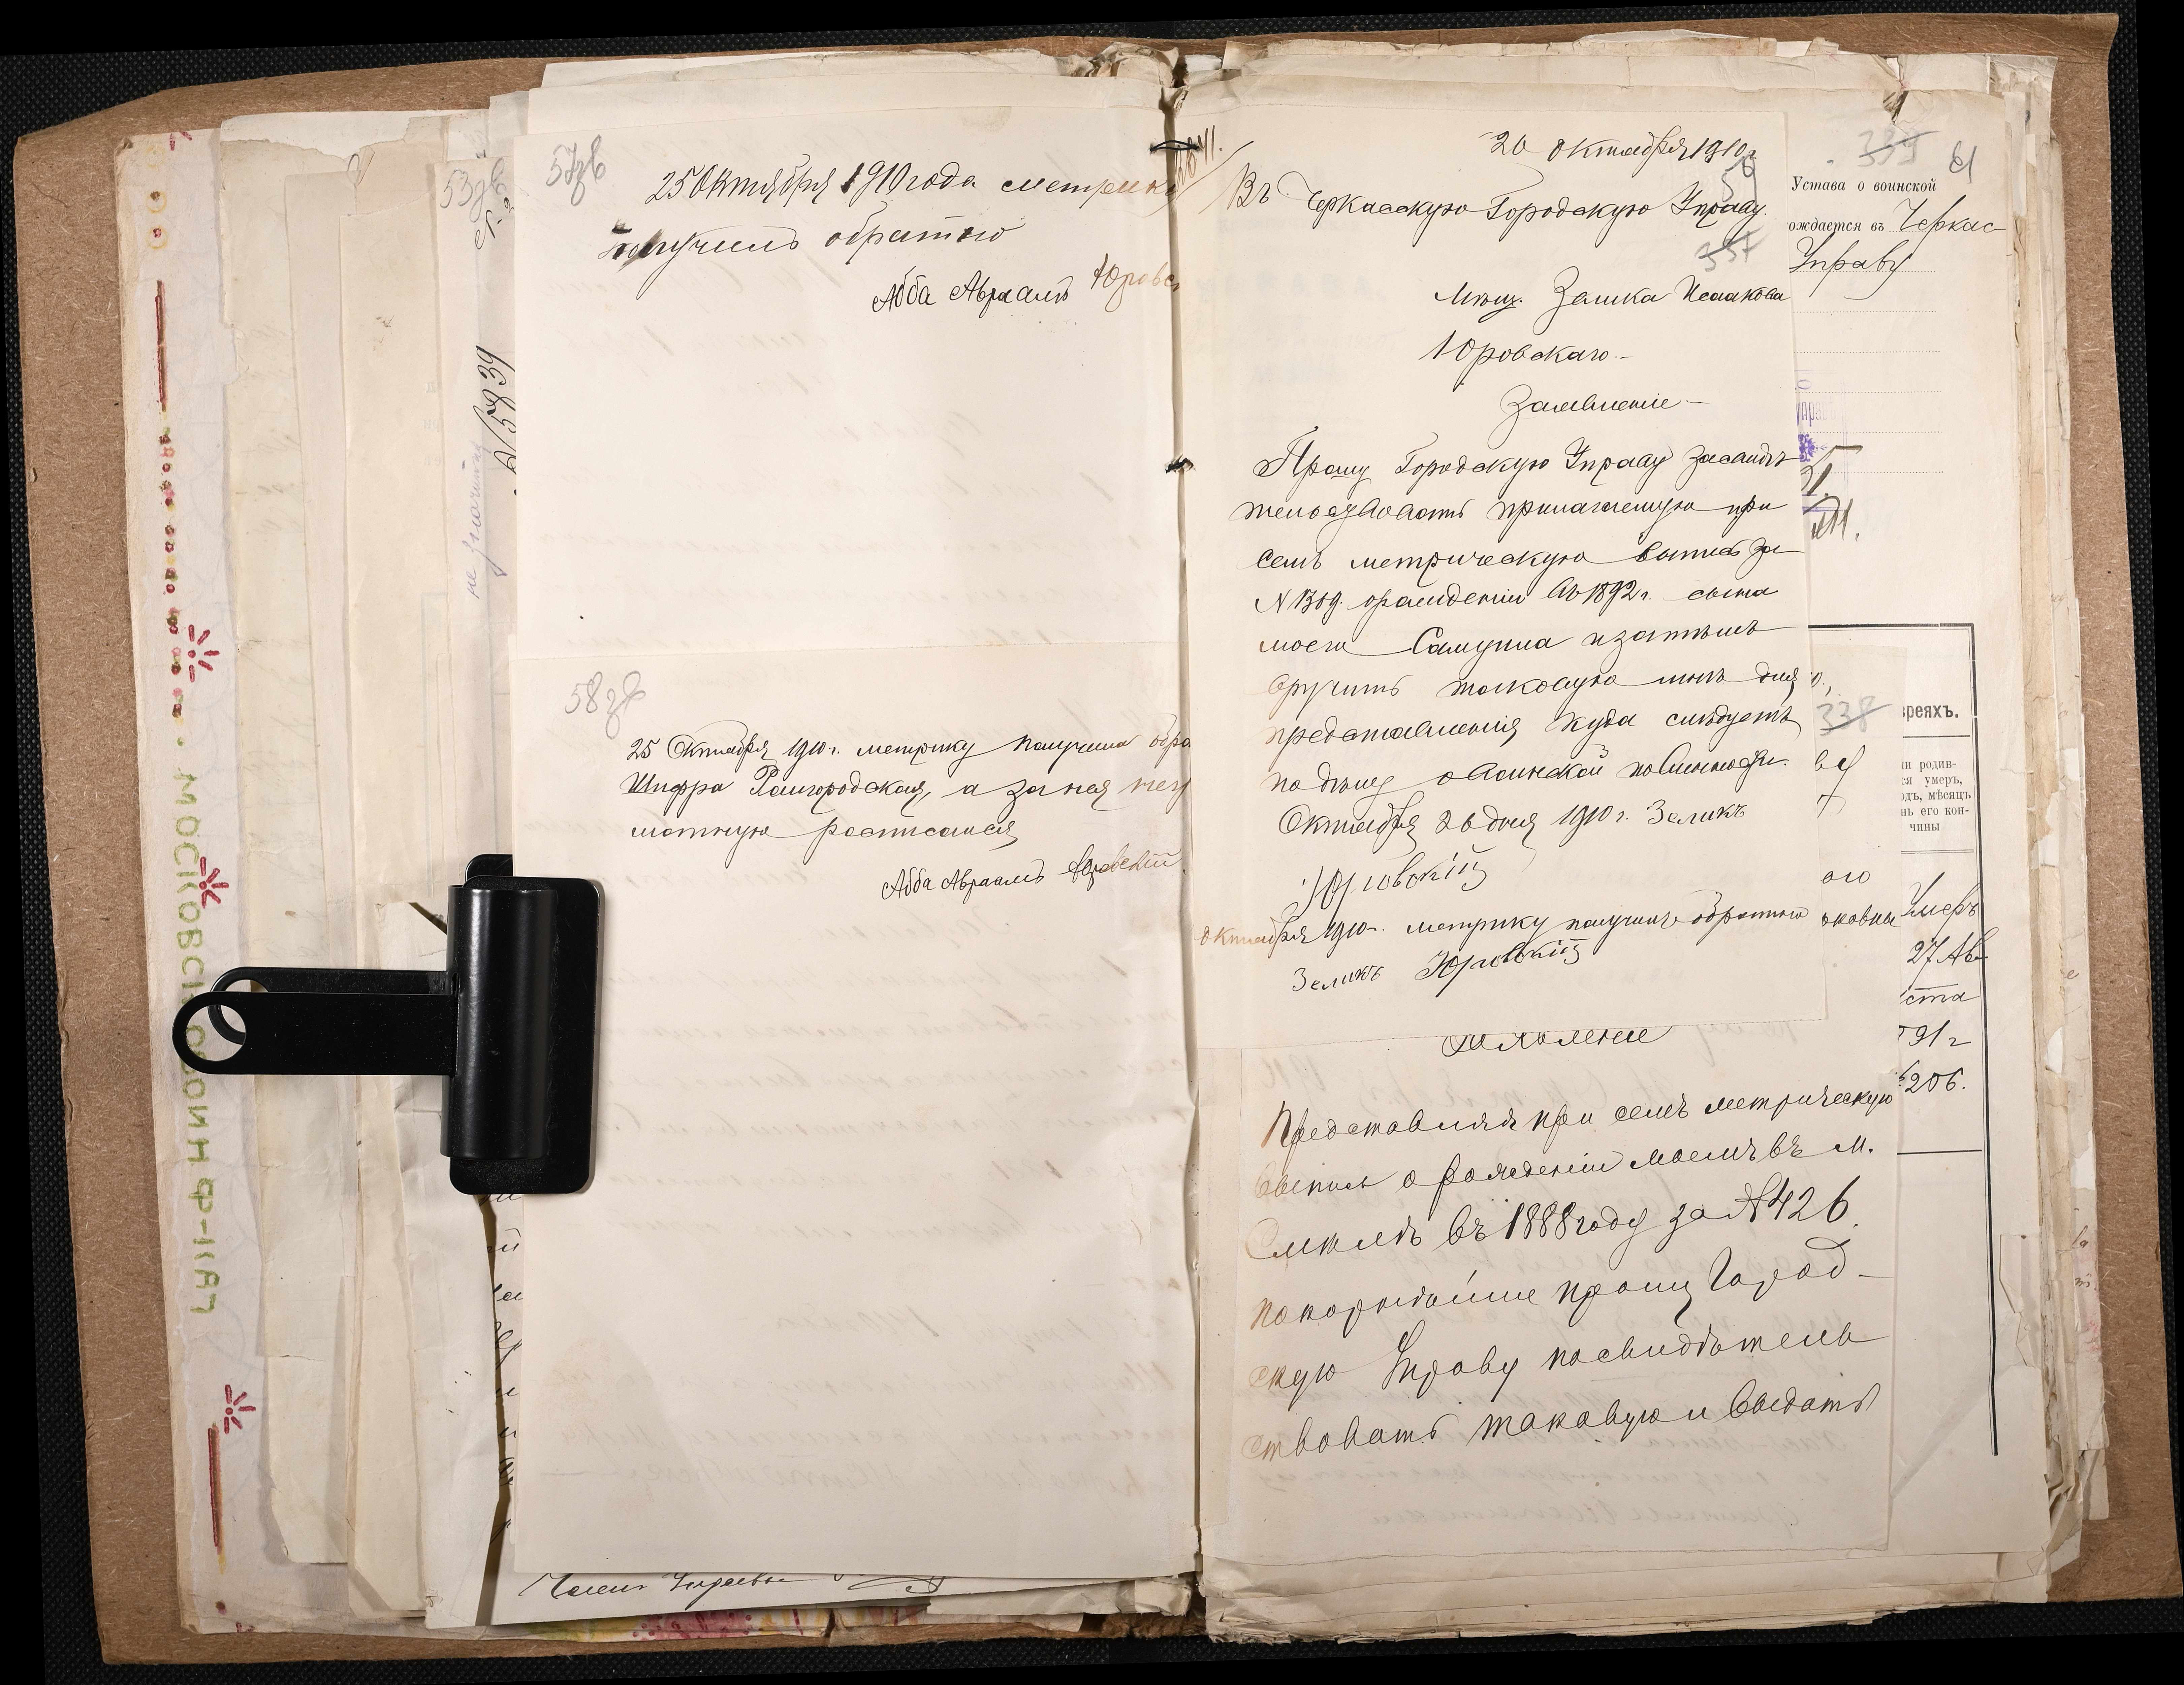 57зв
25 Октября 1910 года метрику
получилъ обратно
Абба Авраамъ Юровс
58зв
25 Октября 1910 г. метрику получила обра
Шифра Рашгородская, а за нея негра
мотную росписался
Абба Авраамъ Юровскій
53зв
№ 5839
не значится
Членъ Управы
МОСКОВСК
Ф-КАЯ
20 Октября 1910 г.
59
Въ Черкасскую Городскую Управу.
337
Мѣщ. Зелика Исаакова
Юровскаго.-
Заявленіе-
Прошу Городскую Управу засвидѣ
тельствовать прилагаемую при
семъ метрическую выпись за
N 1309. о рожденіи въ 1892 г. сына
моего Самуила и затѣмъ
вручить таковую мнѣ для
представленія куда слѣдуетъ
по дѣлу о воинской повинности.
Октября 26 дня 1910 г. Зеликъ
Юровскій
Октября 1910 г. метрику получилъ обратно
Зеликъ Юровскій
Заявление
Представляя при семъ метрическую
выпись о рожденіи моемъ въ м.
Смѣлѣ въ 1888 году за № 426.
покорнѣйше прошу Город-
скую Управу посвидѣтель
ствовать таковую и выдать
339
61
Устава о воинской
ождается въ Черкас-
Управу
338
вреяхъ.
ли родив-
ся умеръ,
одъ, мѣсяцъ
нь его кон-
чины
ого
Умеръ
27 Ав
ста
91 г
206.